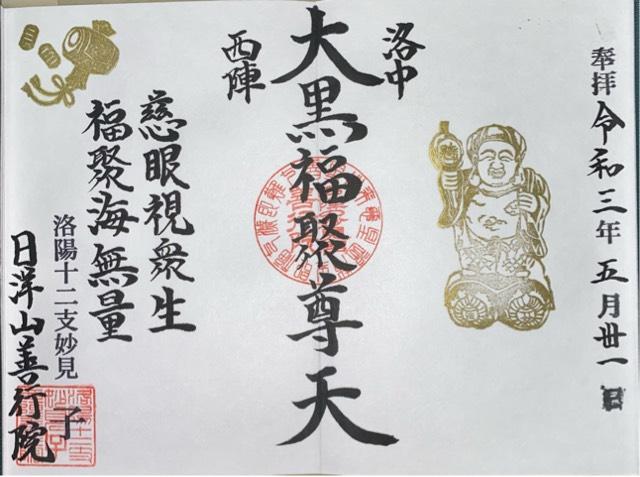 奉拝 令和三年五月卅一日
洛中
大黒福聚尊天
西陣
慈眼視衆生
福聚海無量
洛陽十二支妙見 子
日洋山善行院